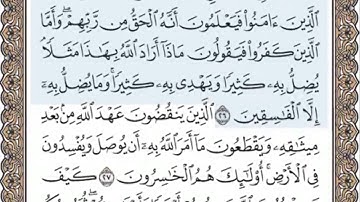 الَّذِينَ ءَامَنُوا فَيَعْلَمُونَ أَنَّهُ الْحَقُّ مِن رَّبِّهِمْ ۖ وَأَمَّا
الَّذِينَ كَفَرُوا فَيَقُولُونَ مَاذَا أَرَادَ اللَّهُ بِهَٰذَا مَثَلًا ۘ
يُضِلُّ بِهِ كَثِيرًا وَيَهْدِي بِهِ كَثِيرًا ۚ وَمَا يُضِلُّ بِهِ
إِلَّا الْفَٰسِقِينَ ٢٦ الَّذِينَ يَنقُضُونَ عَهْدَ اللَّهِ مِن بَعْدِ
مِيثَٰقِهِ وَيَقْطَعُونَ مَا أَمَرَ اللَّهُ بِهِ أَن يُوصَلَ وَيُفْسِدُونَ
فِي الْأَرْضِ ۚ أُولَٰئِكَ هُمُ الْخَٰسِرُونَ ٢٧ كَيْفَ